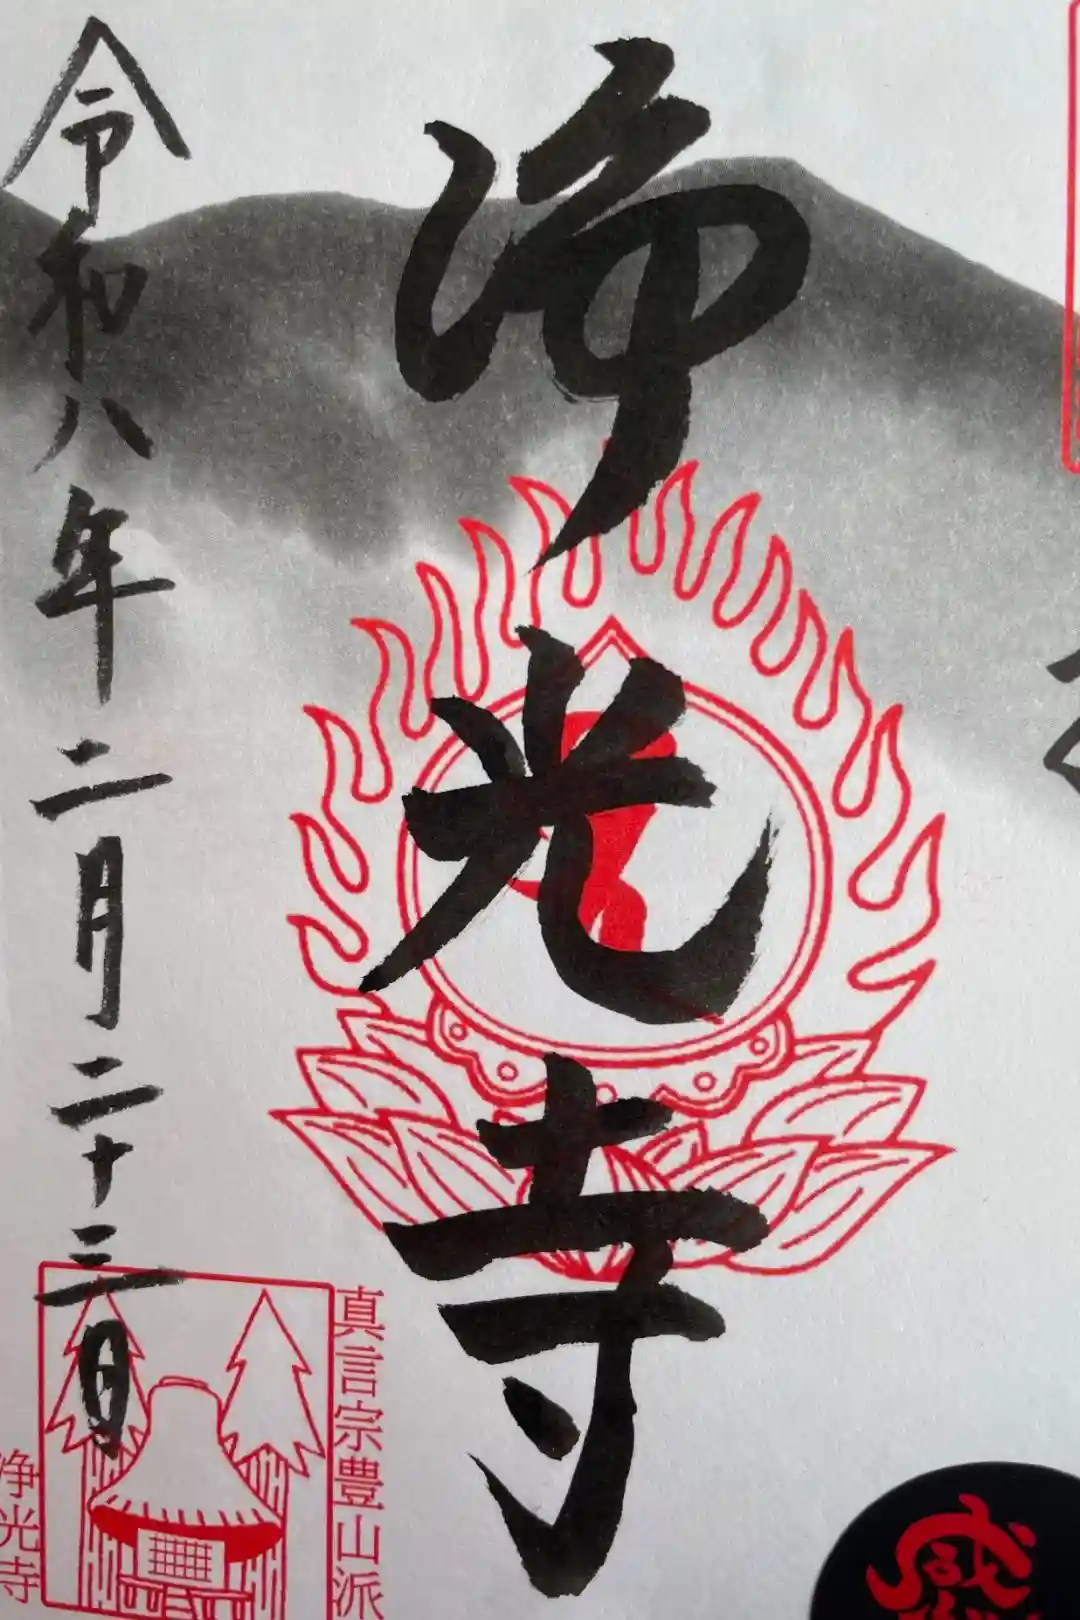 浄光寺
令和八年二月二十三日
真言宗豊山派
浄光寺